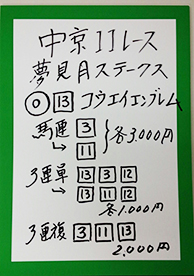 中京11レース
夢見月ステークス
◎ 13 コウエイエンブレム
馬連 3
→ 11
各3.000円
3連単 13 3 12
→ 13 11 12
各1.000円
3連複 3 11 13
2.000円